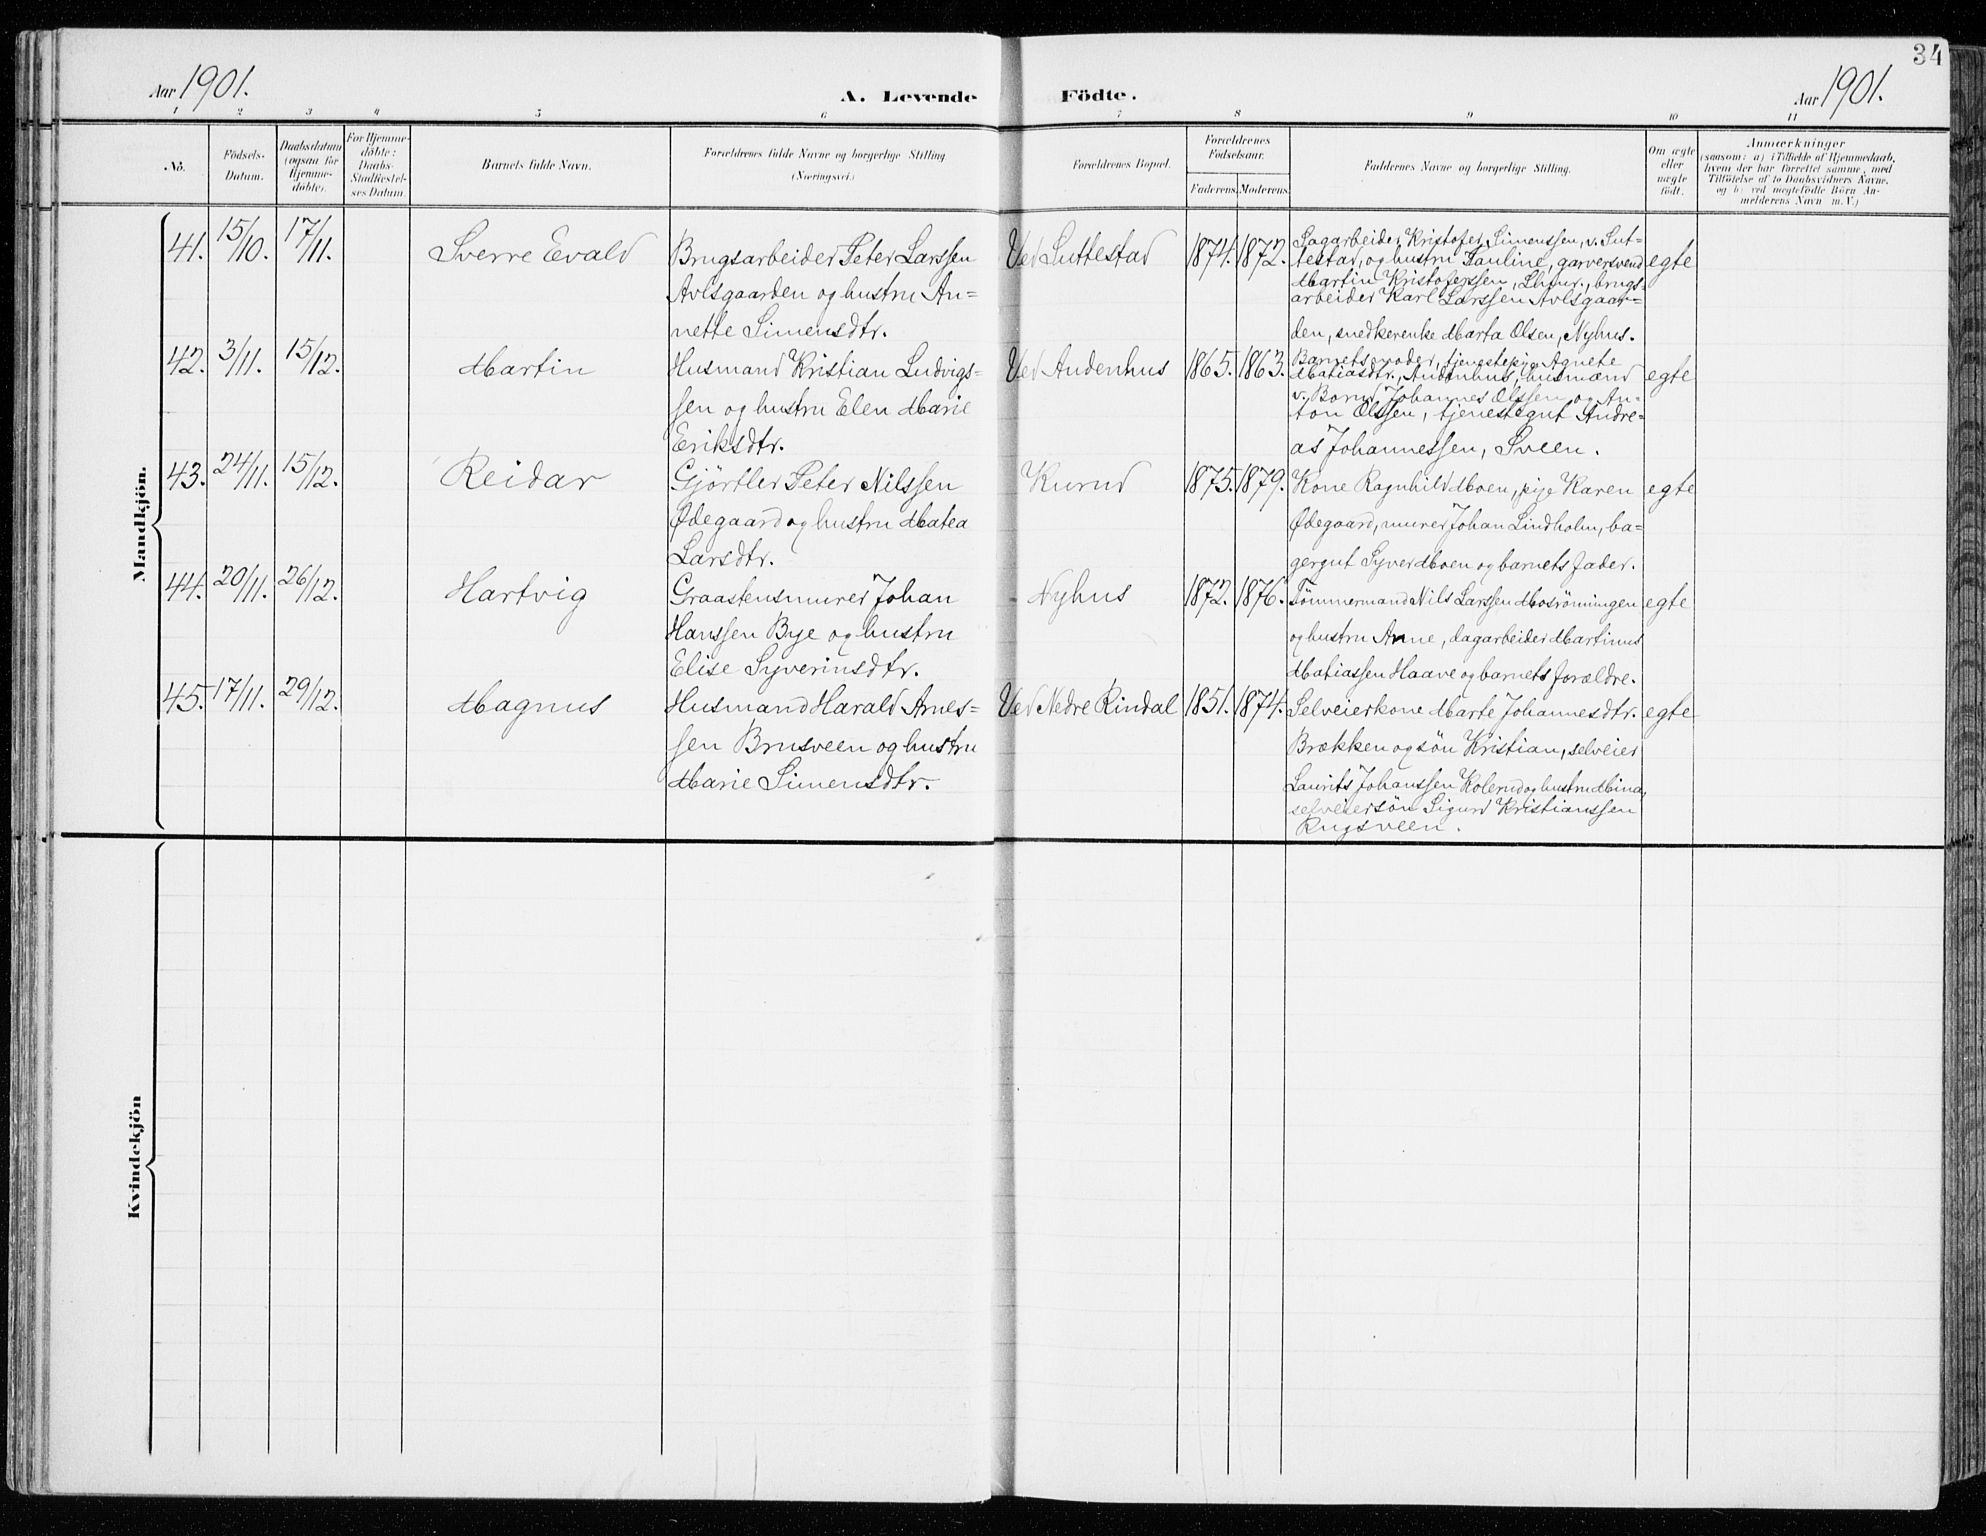 34
Aar 1901.
A. Levende Födte.
Aar 1901.
1 2 3 4 5 6 7 8 9 10 11
No.
Födsels-
Datum.
Daabsdatum
(ogsaa for
Hjemme-
döbte).
For Hjemme-
döbte:
Daabs-
Stadfæstel-
ses Datum.
Barnets fulde Navn.
Forældrenes fulde Navne og borgerlige Stilling
(Næringsvei.)
Forældrenes Bopæl.
Forældrenes
Födselsaar.
Faderens. Moderens.
Faddernes Navne og borgerlige Stilling.
Om ægte
eller
uægte
födt.
Anmærkninger
(saasom: a) i Tilfælde af Hjemmedaab,
hvem der har forrettet samme, med
Tilföielse af to Daabsvidners Navne,
og b) ved uegtefödte Börn An-
melderens Navn m. V.)
Mandkjön.
41. 15/10. 17/11.
Sverre Evald
Brugsarbeider Peter Larssen
Avlsgaarden og hustru An=
nette Simensdtr.
Ved Suttestad
1874. 1872.
Sagarbeider Kristofer Simenssen, v. Sut=
testad, og hustru Pauline, garversvend
Martin Kristoferssen, Lhmr., brugs=
arbeider Karl Larssen Avlsgaar=
den, snedkerenke Marta Olsen, Nyhus.
egte
42. 3/11. 15/12.
Martin
Husmand Kristian Ludvigs=
sen og hustru Elen Marie
Eriksdtr.
Ved Audenhus
1865. 1863.
Barnets moder, tjenestepige Agnete
Matiasdtr., Audenhus, husmænd
v. Borud, Johannes Olssen og An=
ton Olssen, tjenestegut Andre=
as Johannessen, Sveen.
egte
43. 24/11. 15/12.
Reidar
Gjørtler Peter Nilssen
Ødegaard og hustru Matea
Larsdtr.
Kurud
1875. 1879.
Kone Ragnhild Moen, pige Karen
Ødegaard, murer Johan Lindholm, ba=
gergut Syver Moen og barnets fader.
egte
44. 20/11. 26/12.
Hartvig
Graastensmurer Johan
Hanssen Bye og hustru
Elise Syverinsdtr.
Nyhus
1872. 1876.
Tømmermand Nils Larssen Mosrönningen
og hustru Anne, dagarbeider Martinus
Matiassen Haave og barnets forældre.
egte
45. 17/11. 29/12.
Magnus
Husmand Harald Arnes=
sen Brusveen og hustru
Marie Simensdtr.
Ved Nedre Rindal
1851. 1874.
Selveierkone Marte Johannesdtr.
Brækken og søn Kristian, selveier
Laurits Johanssen Kolerud og hustru Mina,
selveiersön Sigurd Kristianssen
Rugsveen.
egte
Kvindekjön